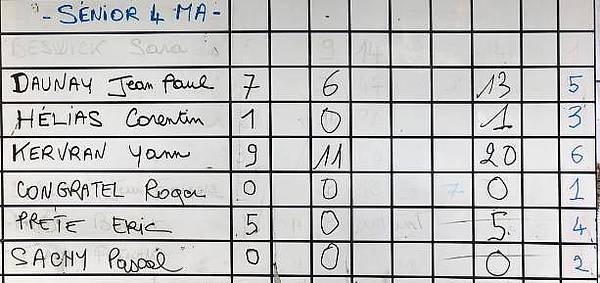 - SÉNIOR 4 MA -
BESWICK Sara 5 9 14
DAUNAY Jean Paul 7 6 13 5
HÉLIAS Corentin 1 0 1 3
KERVRAN Yann 9 11 20 6
CONGRATEL Roger 0 0 0 1
PRETE Eric 5 0 5 4
SACHY Pascal 0 0 0 2